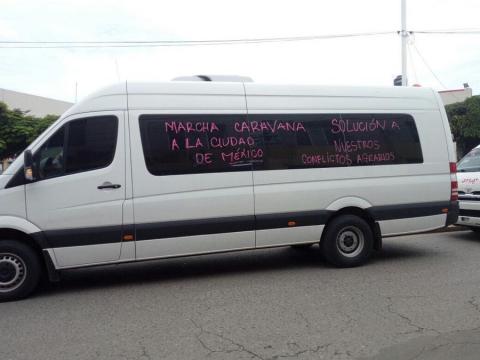 MARCHA CARAVANA
A LA CIUDAD
DE MÉXICO
SOLUCIÓN A
NUESTROS
CONFLICTOS AGRARIOS